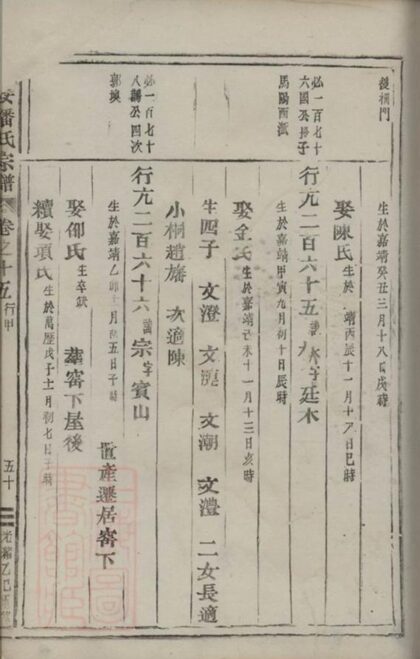 後補門
生於嘉靖癸丑三月十八日戌時
娶陳氏生於 靖丙辰十一月十九日巳時
必一百七十
六國公長子
馬陽西派
行亢二百六十五諱 字廷木
生於嘉靖甲寅九月初十日辰時
娶金氏生於嘉靖己未十一月十三日亥時
生四子 文澄 文 文潮 文澧 二女長適
小桐趙 次適陳
必一百七十
八 公四次
郭
行亢二百六十六諱宗字賓山
生於嘉靖乙卯 月 五日子時
置產遷居窰下
娶邵氏生卒缺 葬窰下屋後
續娶項氏生於萬歷戊子 月初七日 時
潘氏宗譜
卷之十五
行甲
五十
光緒乙巳